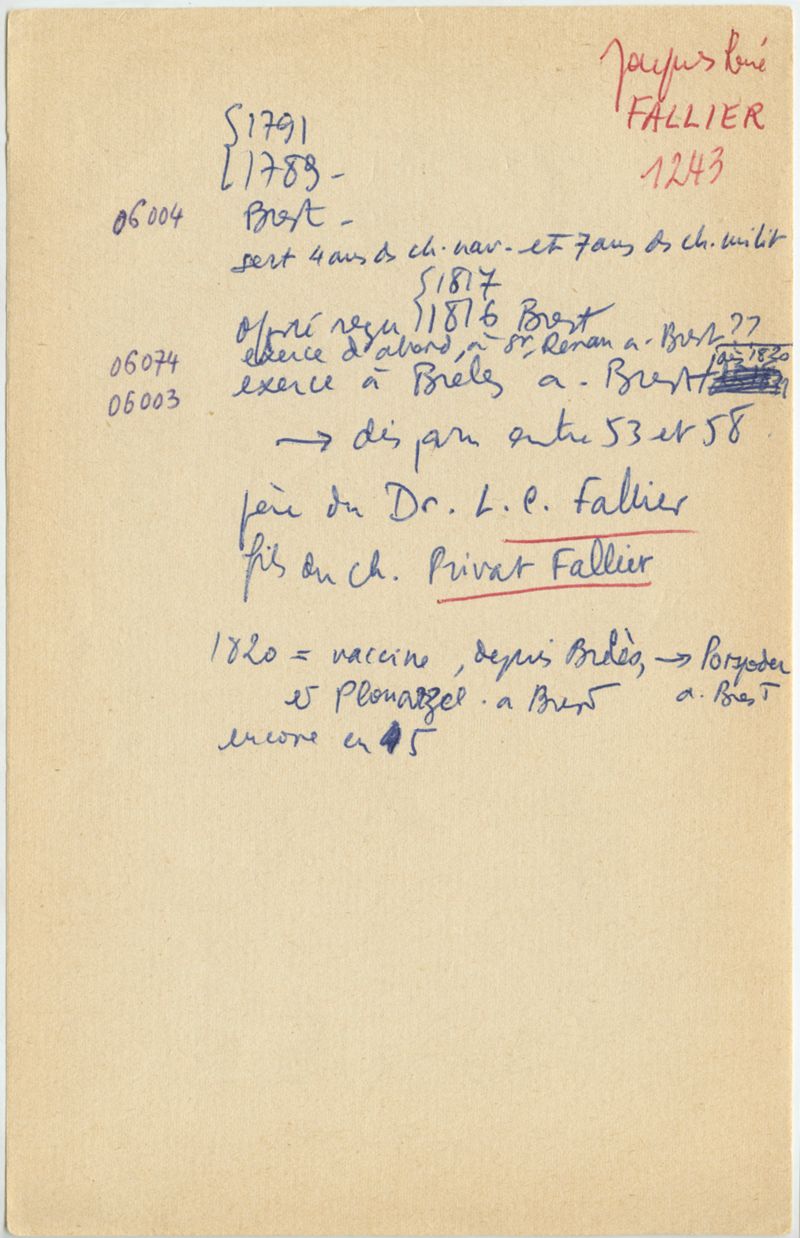 Jacques René
FALLIER
1243
{1791
{1789 -
06004 Brest -
sert 4 ans ds ch. nav - et 7 ans ds ch. milit
{1817
offsé reçu {1816 Brest
06074 exerce d'abord, à St. Renan a - Brest ??
dès 1820
06003 exerce à Brélès a - Brest
→ disparu entre 53 et 58
père du Dr. L. C. Fallier
fils du ch. Privat Fallier
1820 = vaccine, depuis Brélès, → Porspoder
et Plouarzel . a Brest a. Brest
encore en 45